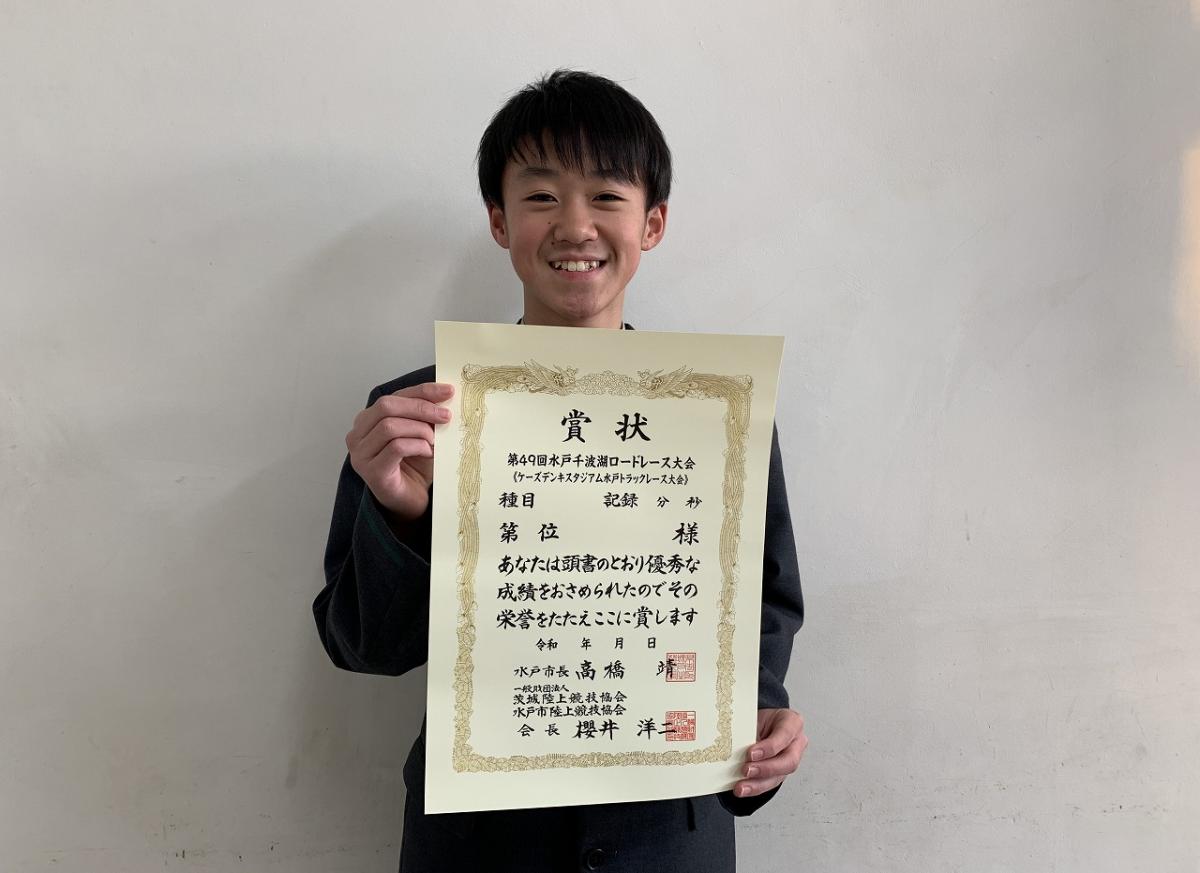 賞状
第49回水戸千波湖ロードレース大会
《ケーズデンキスタジアム水戸トラックレース大会》
種目 記録 分 秒
第 位 様
あなたは頭書のとおり優秀な
成績をおさめられたのでその
栄誉をたたえここに賞します
令和 年 月 日
水戸市長 高橋 靖
一般財団法人
茨城陸上競技協会
水戸市陸上競技協会
会長 櫻井 洋二